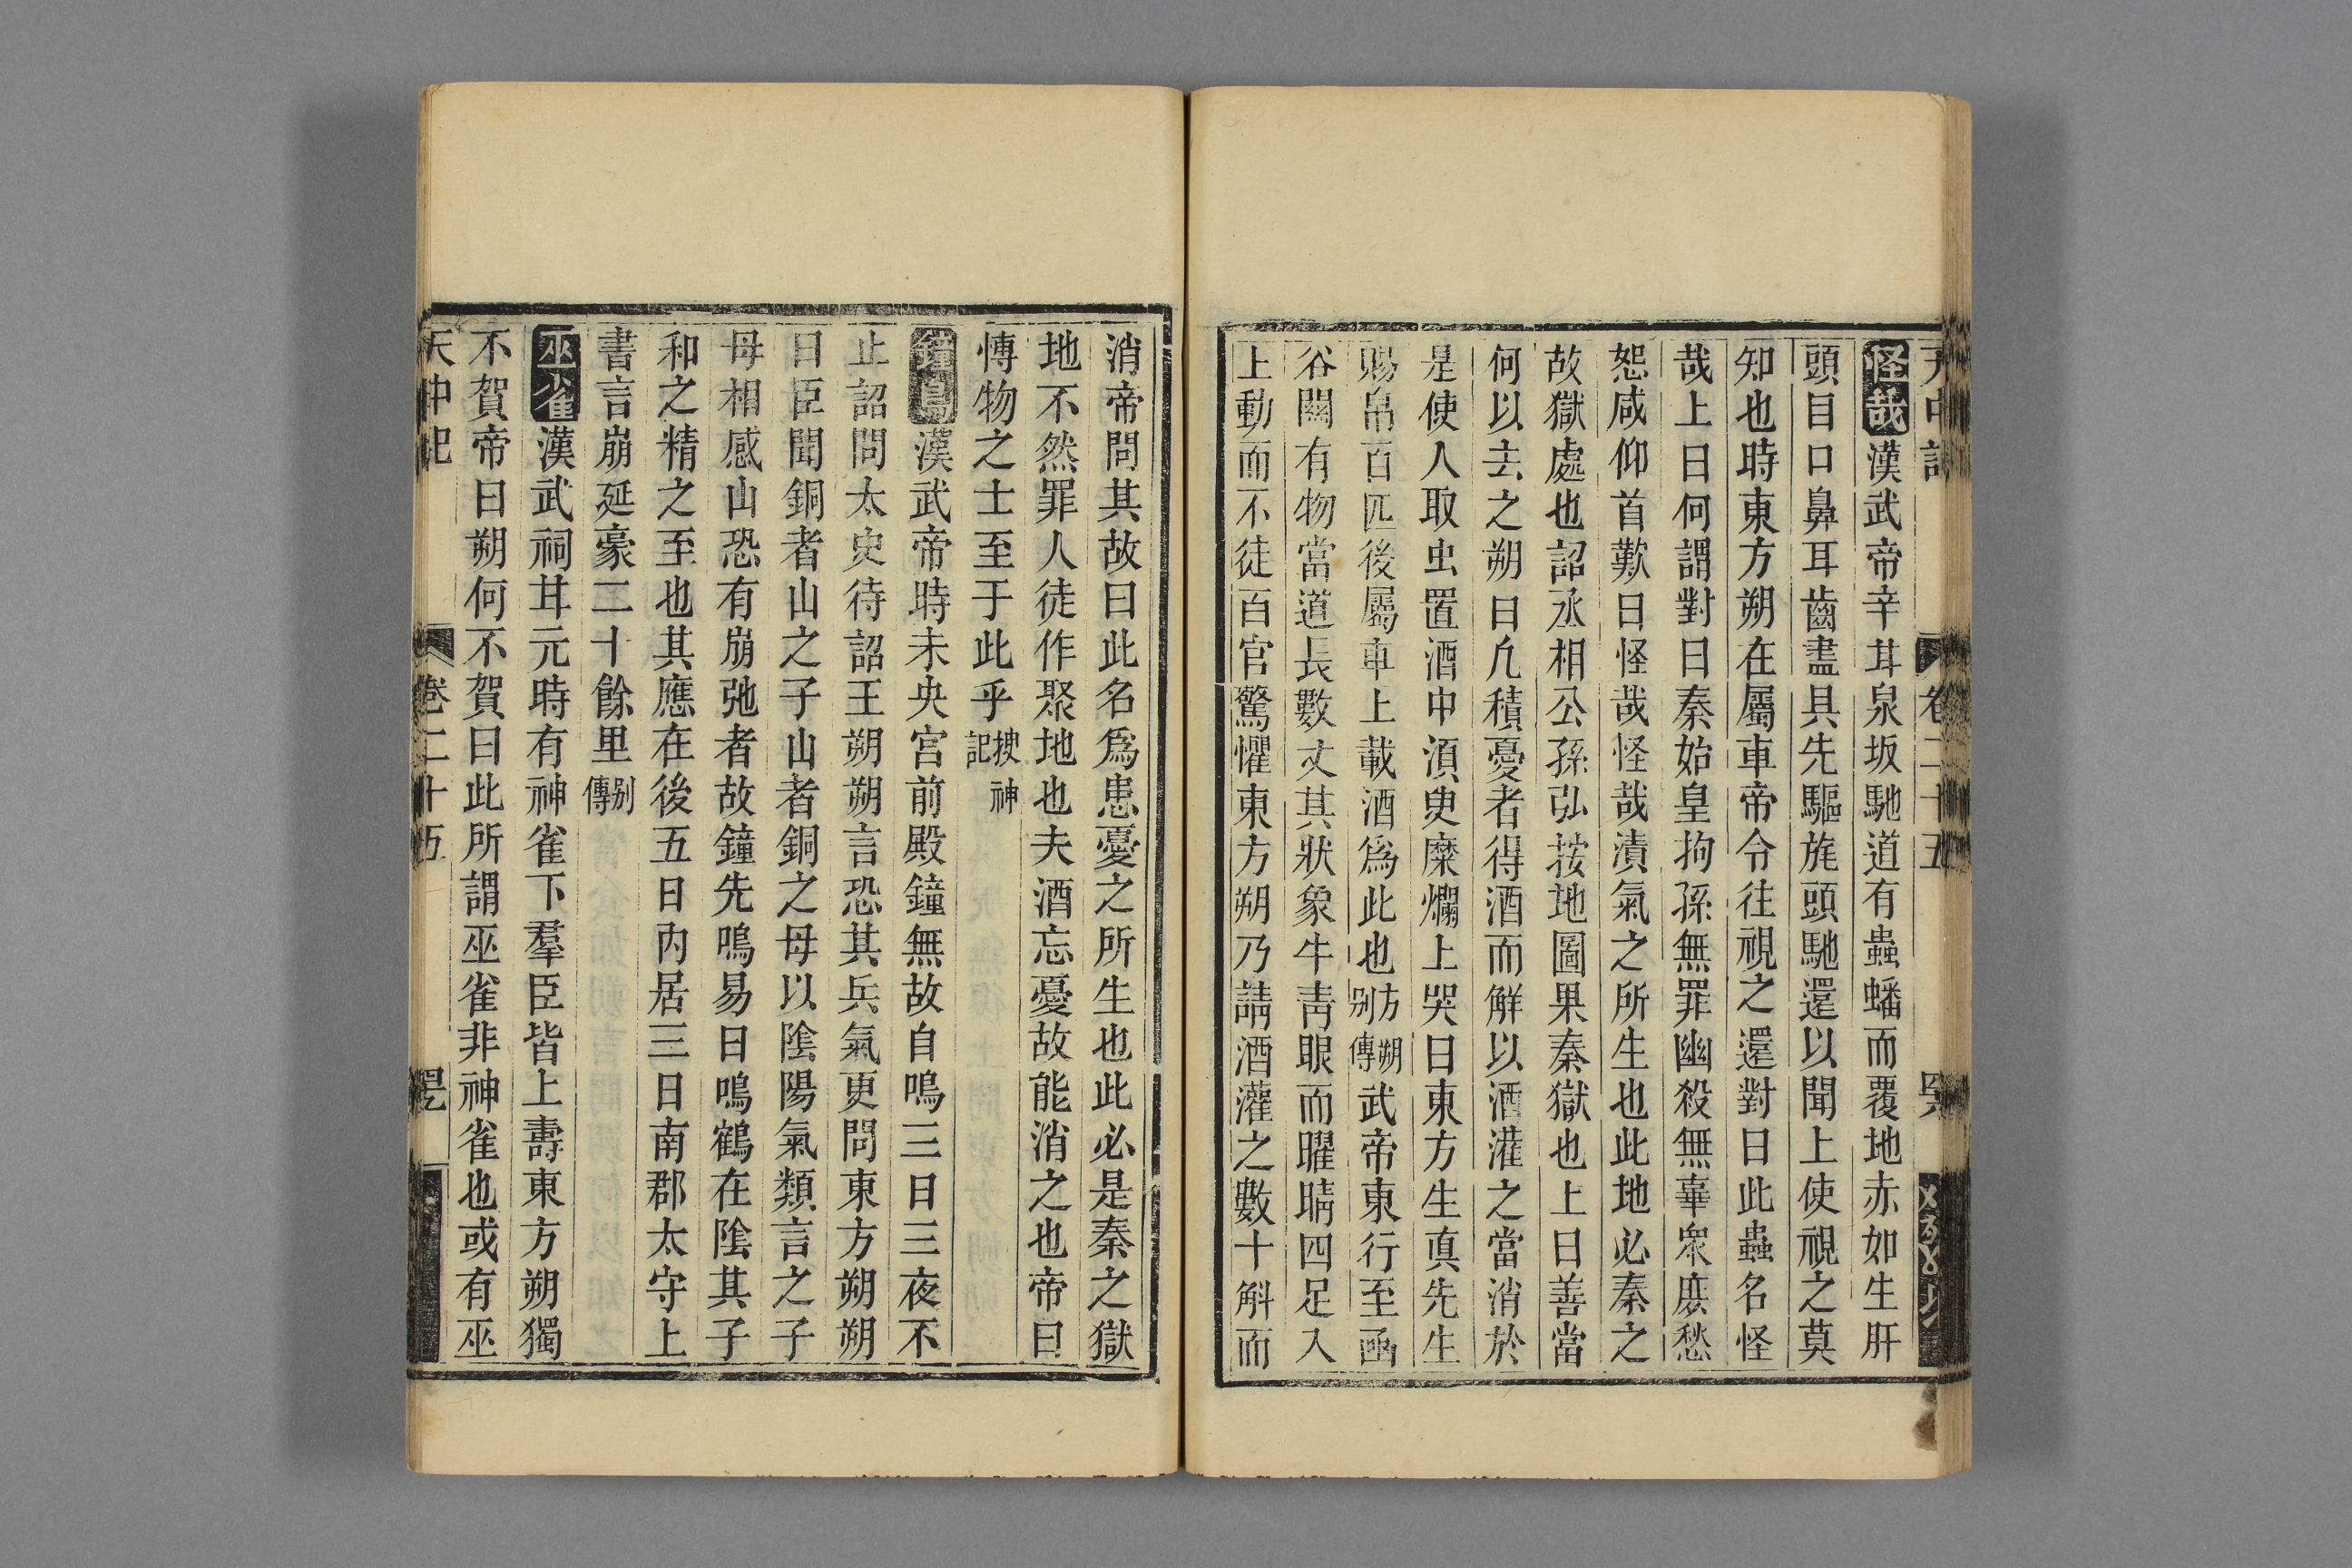 天中記 卷二十五
怪哉漢武帝辛甘泉坂馳道有蟲蟠而覆地赤如生肝
頭目口鼻耳齒盡具先驅旄頭馳還以聞上使視之莫
知也時東方朔在屬車帝令往視之還對曰此蟲名怪
哉上曰何謂對曰秦始皇拘孫無罪幽殺無辜衆庶愁
怨咸仰首歎曰怪哉怪哉漬氣之所生也此地必秦之
故獄處也詔丞相公孫弘按地圖果秦獄也上曰善當
何以去之朔曰凢積憂者得酒而解以酒灌之當消於
是使人取虫置酒中湏臾糜爛上哭曰東方生真先生
賜帛百匹後屬車上載酒爲此也方朔別傳武帝東行至函
谷關有物當道長數丈其狀象牛靑眼而曜睛四足入
上動而不徒百官驚懼東方朔乃請酒灌之數十斛而
消帝問其故曰此名爲患憂之所生也此必是秦之獄
地不然罪人徒作聚地也夫酒忘憂故能消之也帝曰
博物之士至于此乎搜神記
鐘鳴漢武帝時未央宮前殿鐘無故自鳴三日三夜不
止詔問太史待詔王朔朔言恐其兵氣更問東方朔朔
曰臣聞銅者山之子山者銅之母以陰陽氣類言之子
母相感山恐有崩弛者故鐘先鳴易曰鳴鶴在陰其子
和之精之至也其應在後五日內居三日南郡太守上
書言崩延豪二十餘里別傳
巫雀漢武祠甘元時有神雀下羣臣皆上壽東方朔獨
不賀帝曰朔何不賀曰此所謂巫雀非神雀也或有巫
天中記 卷二十五